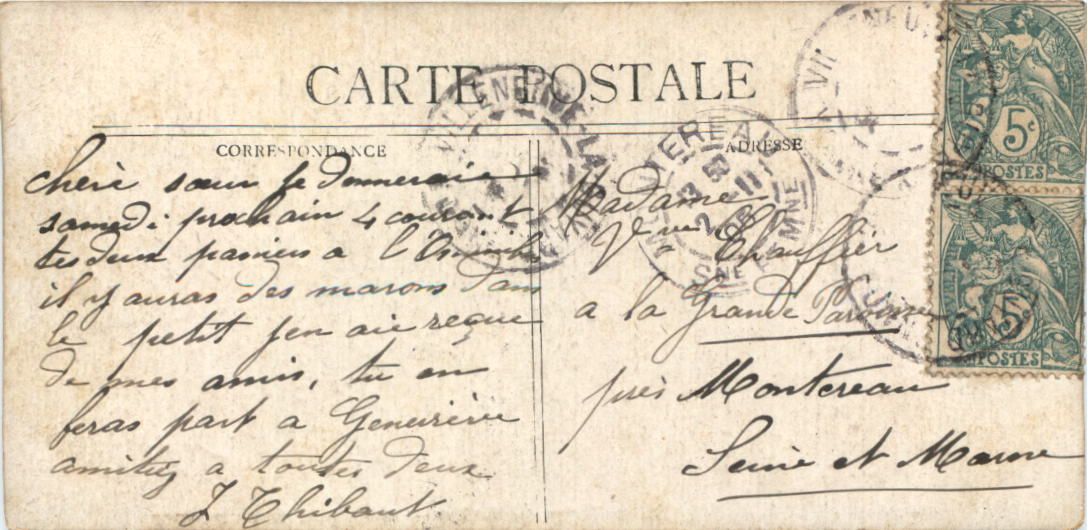 CARTE POSTALE
CORRESPONDANCE
chère sœur je donnerais
samedi prochain 4 courant
tes deux paniers a
il y auras des marons dans
le petit j'en aie reçue
de mes amis, tu en
feras part a Geneviève
amitiez a toutes deux
Thibaut
ADRESSE
Madame
Vve Chauffier
a la Grande Paroisse
près Montereau
Seine et Marne
5c
POSTES
5c
POSTES
VILLENEUVE-LA
MONTEREAU
2 -11